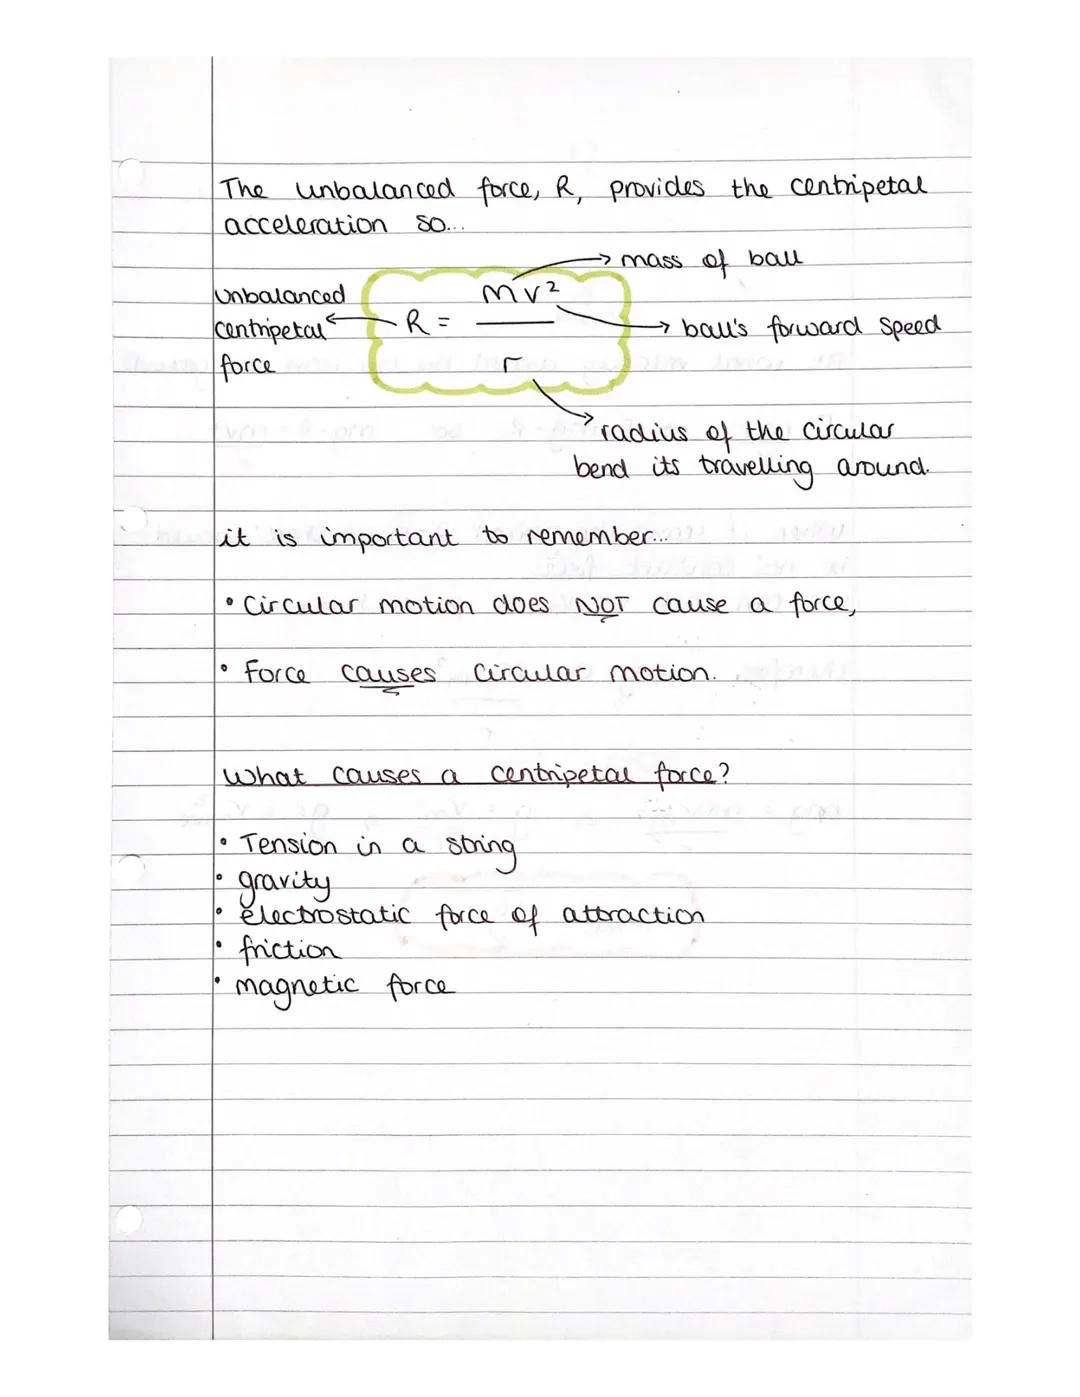 The unbalanced force, R, provides the centripetal
acceleration so...
→ mass of ball
unbalanced
centripetal
force
R = mv²
r
→ ball's forward speed
→ radius of the circular
bend its travelling around.
it is important to remember...
• Circular motion does NOT cause a force,
• Force causes circular motion.
What causes a centripetal force?
• Tension in a string
• gravity
• electrostatic force of attraction
• friction
• magnetic force